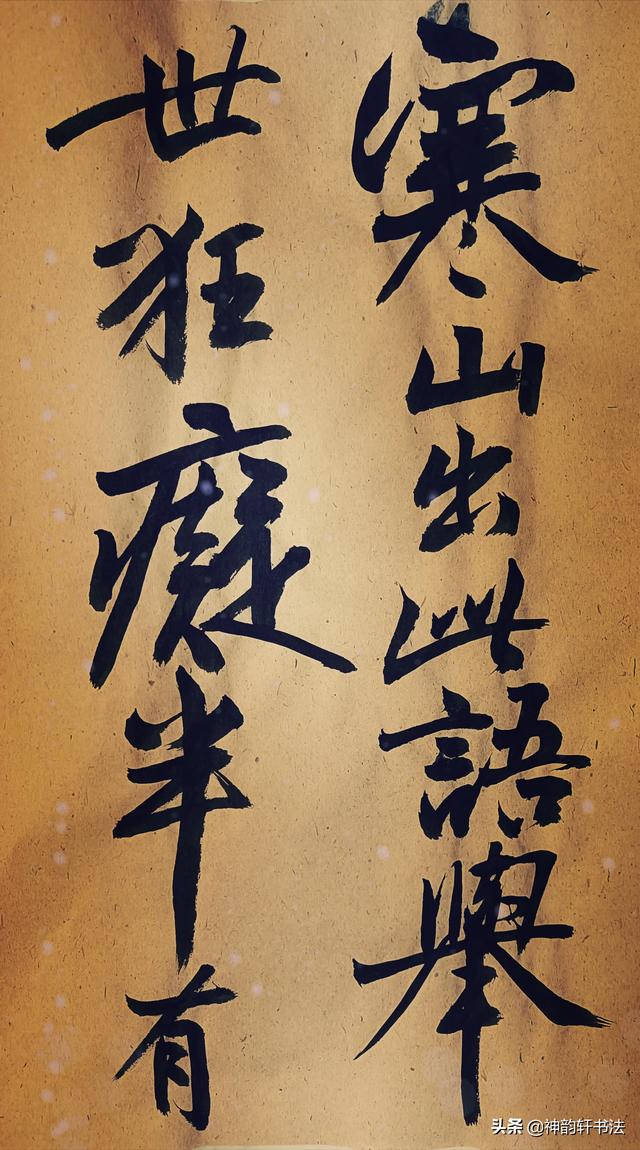 寒山出此語舉
世狂癡半有
头条 @神韵轩书法